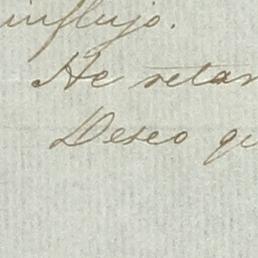 influjo.
He retar
Deseo qu